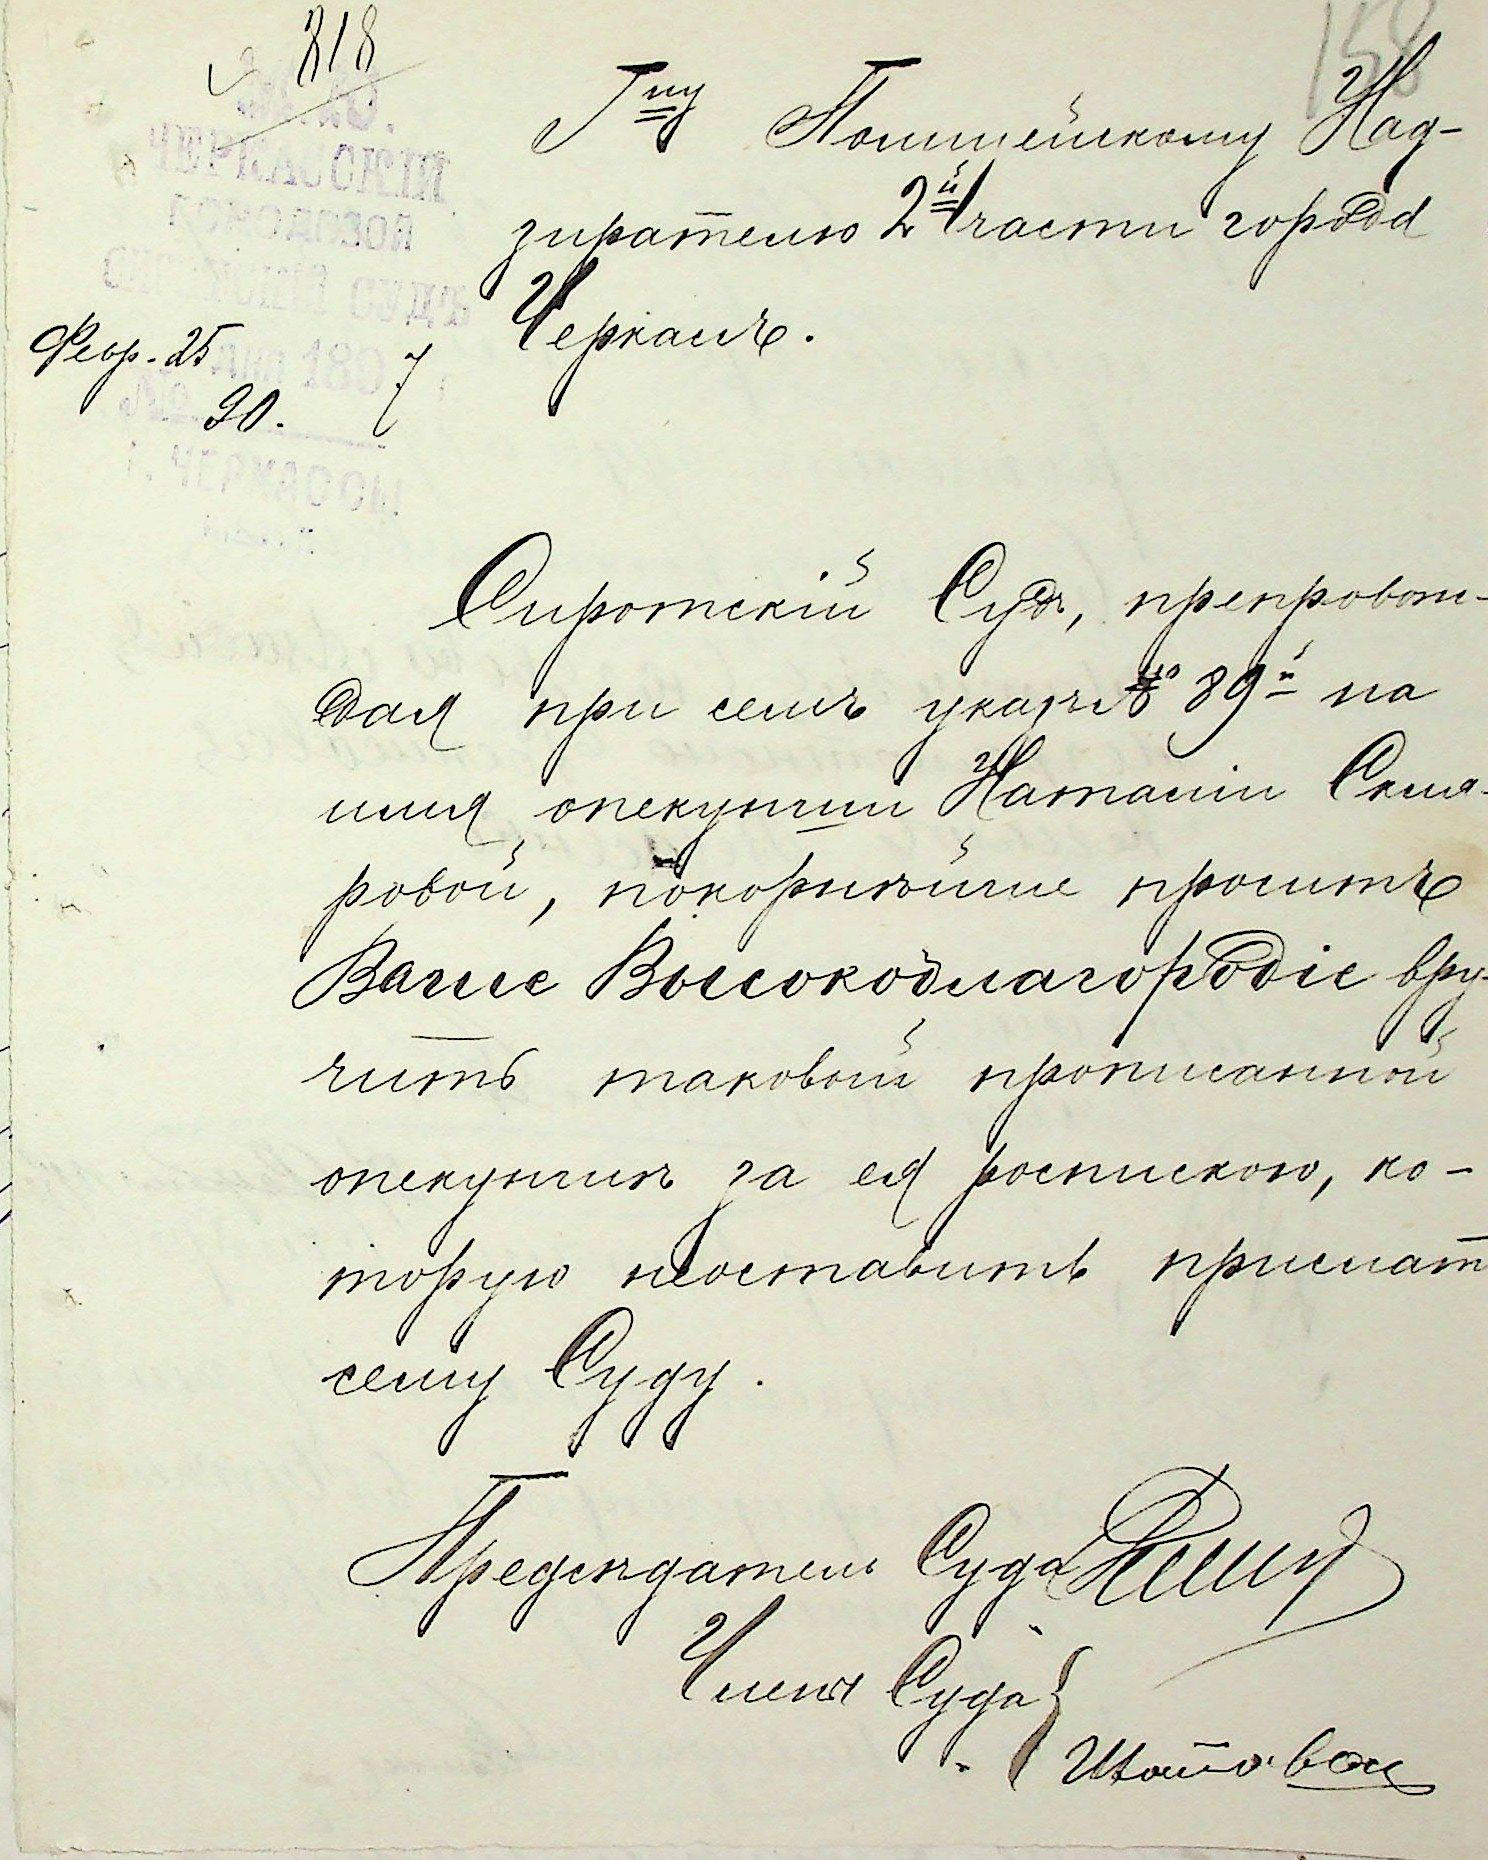 818
158
М.В.Ю.
ЧЕРКАССКІЙ
ГОРОДОВОЙ
СИРОТСКІЙ СУДЪ
Февр. 25 дня 1897
№ 90.
Г. ЧЕРКАССЫ.
Гну Полицейскому Над-
зирателю 2й части города
Черкасъ.
Сиротскій Судъ, препровож-
дая при семъ указъ № 89й на
имя опекунши Наталіи Скля-
ровой, покорнѣйше проситъ
Ваше Высокоблагородіе вру-
чить таковой прописанной
опекуншѣ за ея роспискою, ко-
торую неоставить прислать
сему Суду.
Предсѣдатель Суда
Члены Суда